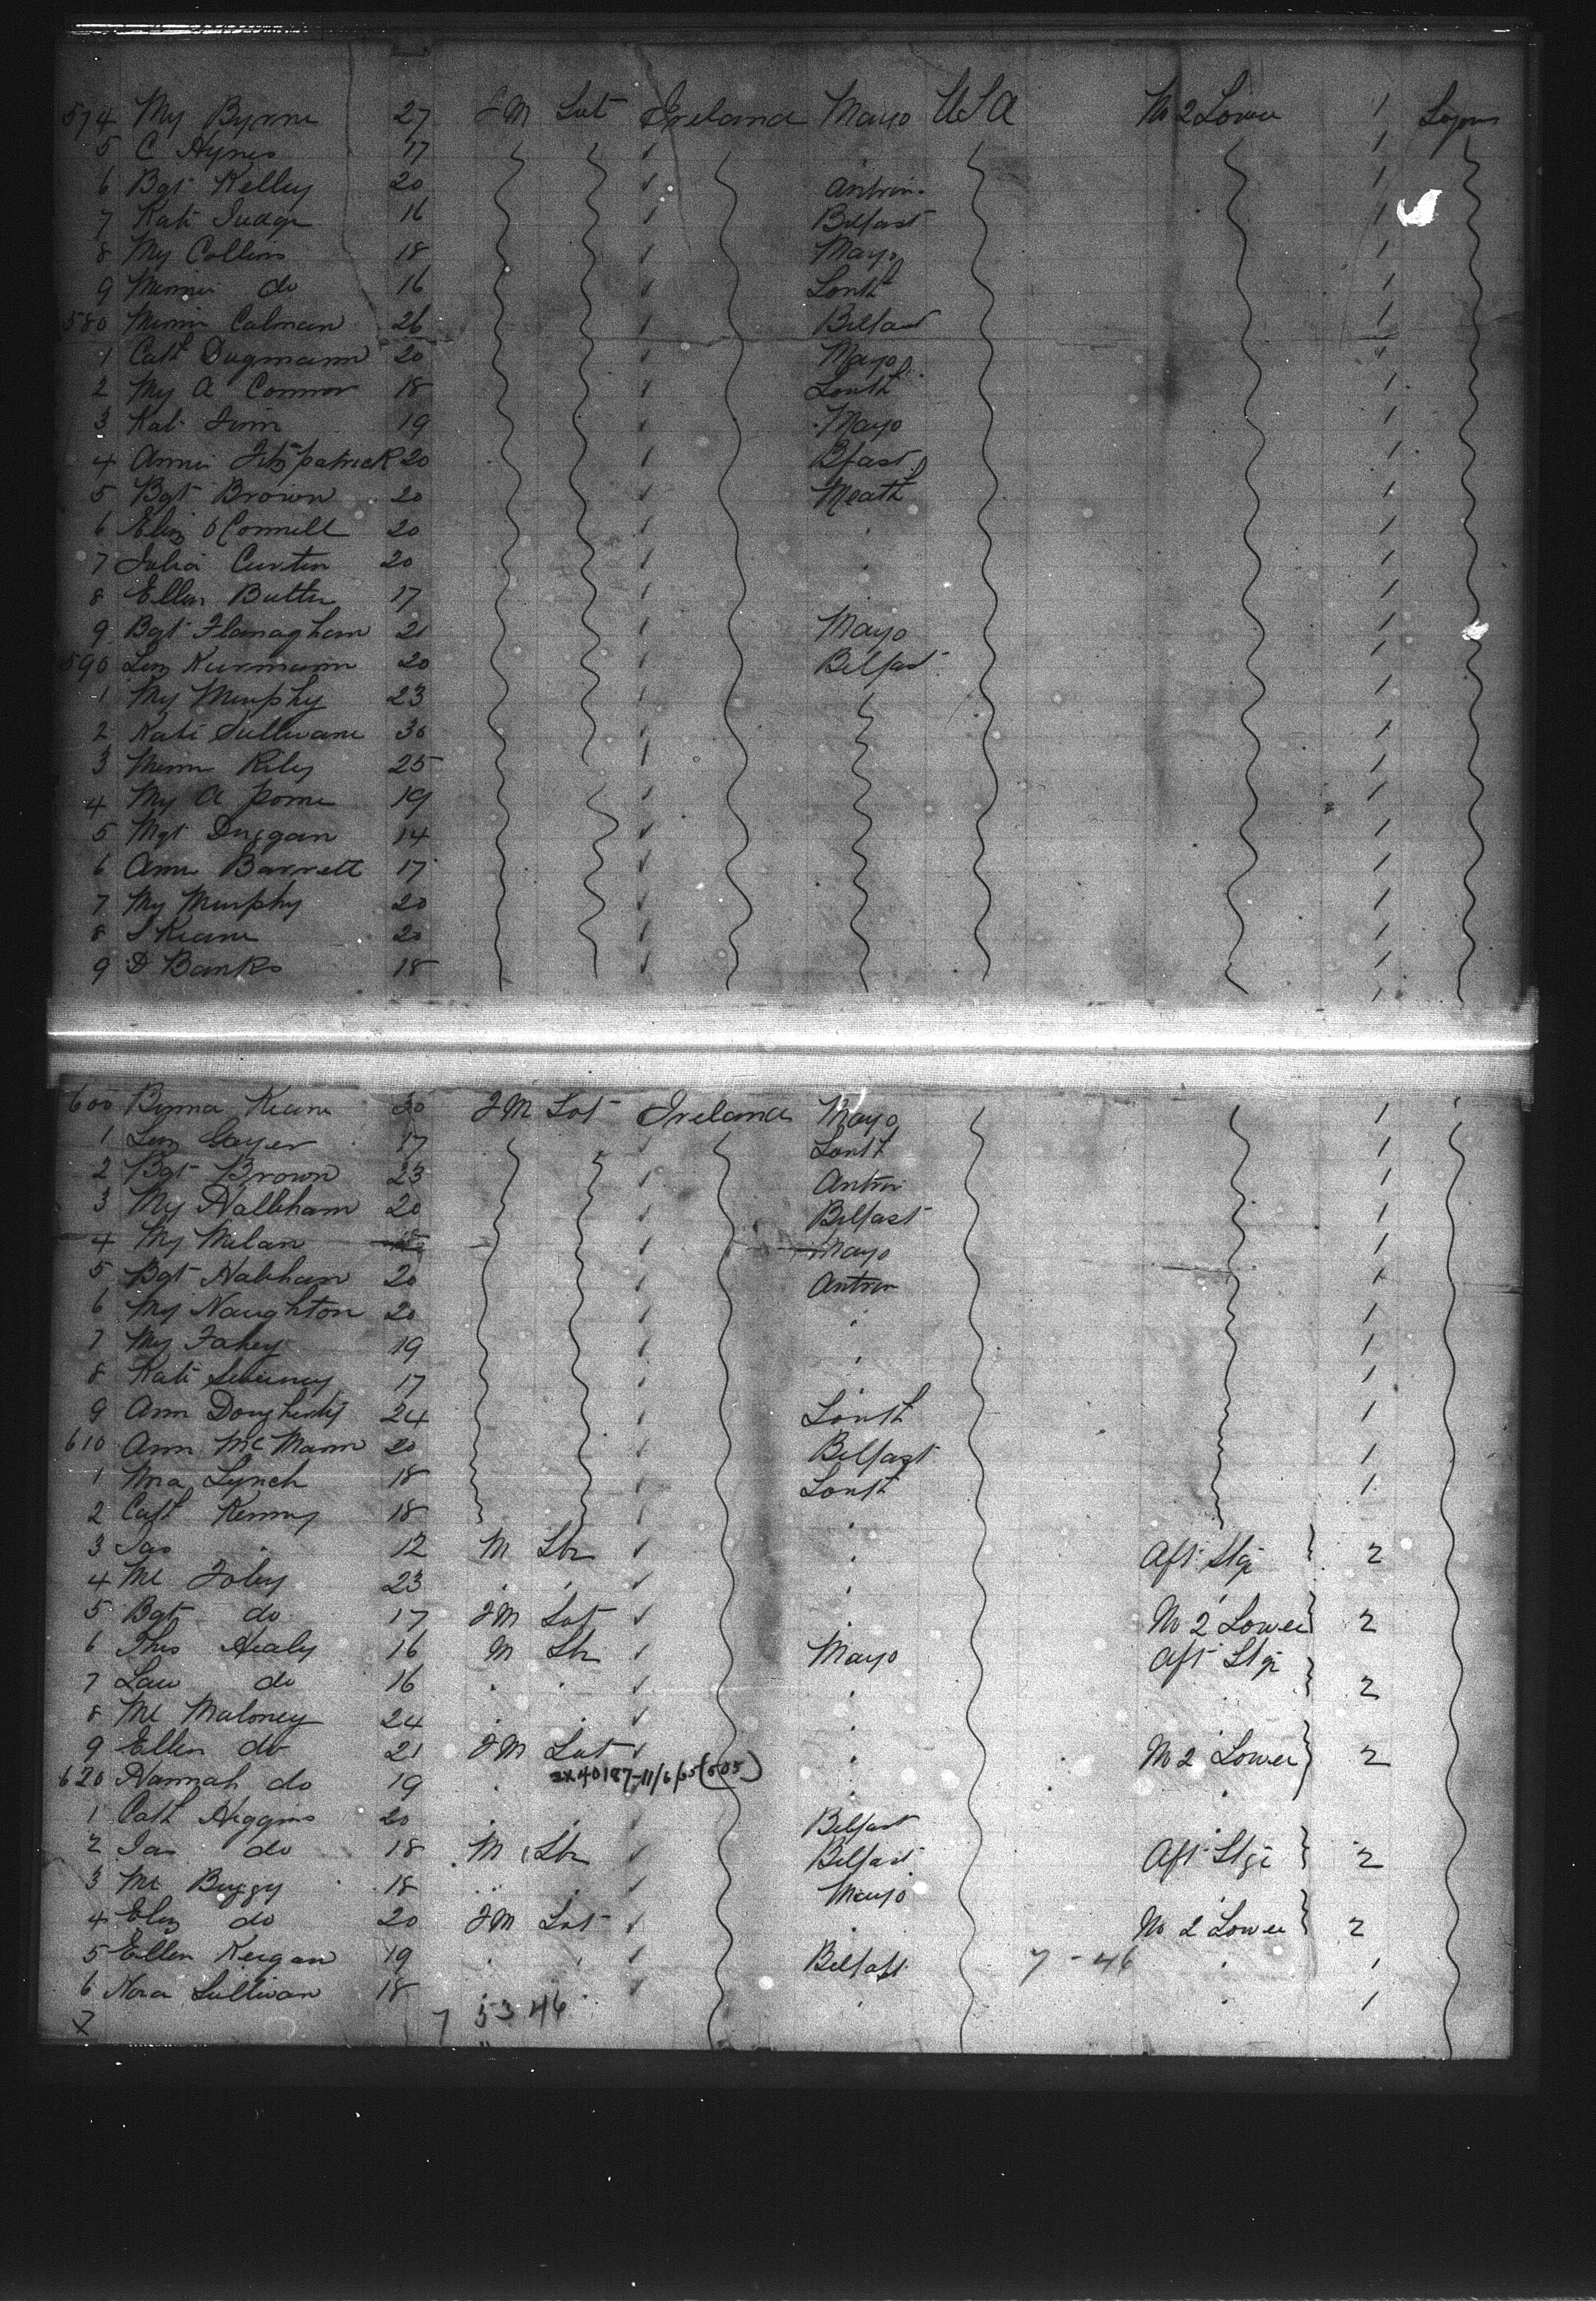 574 My Byrne 27 FM Sut Ireland Mayo USA No 2 Lower 1
5 C Hynes 17 1
6 Bgt Kelley 20 Antrim 1
7 Kate Judge 16 Belfast 1
8 My Collins 18 Mayo 1
9 Minnie do 16 Louth 1
580 Minnie Calman 26 Belfast 1
1 Cath Dugmann 20 Mayo 1
2 My A Connor 18 Louth 1
3 Kat Finn 19 Mayo 1
4 Annie Fitzpatrick 20 Bfast 1
5 Bgt Brown 20 Meath 1
6 Eliz O Connell 20 1
7 Julia Curtin 20 1
8 Ellen Butler 17 1
9 Bgt Flanagham 21 Mayo 1
590 Liz 20 Belfast 1
1 My Murphy 23 1
2 Kate Sullivane 30 1
3 Minn Riley 25 1
4 My A 19 1
5 Mgt Duggan 14 1
6 Ann Barrett 17 1
7 My Murphy 20 1
8 S Keane 20 1
9 D Banks 18 1
600 Keane 30 FM Sut Ireland Mayo 1
1 Liz 17 Louth 1
2 Bgt Brown 23 Antrim 1
3 My Hallkham 20 Belfast 1
4 My Milan Mayo 1
5 Bgt 20 Antrim 1
6 My Naughton 20 1
7 My Fahey 19 1
8 Kate Sweeney 17 1
9 Ann Dougherty 24 Louth 1
610 Ann McMann 20 Belfast 1
1 Nora Lynch 18 Louth 1
2 Cath Kenny 18
3 Jas 12 M Lbr Aft Stge 2
4 Ml Foley 23
5 Bgt do 17 FM Sut No 2 Lower 2
6 Thos Healy 16 M Lbr Mayo Aft Stge
7 Law do 16 2
8 Ml Maloney 24
9 Ellen do 21 FM Sut No 2 Lower 2
620 Hannah do 19 2X40187-11/6/55(505)
1 Cath Higgins 20 Belfast
2 Jas do 18 M Lbr Belfast Aft Stge 2
3 Ml Buggy 18 Mayo
4 Eliz do 20 FM Sut No 2 Lower 2
5 Ellen Keegan 19 Belfast 7-46 1
6 Nora Sullivan 18 1
7 7 53 46